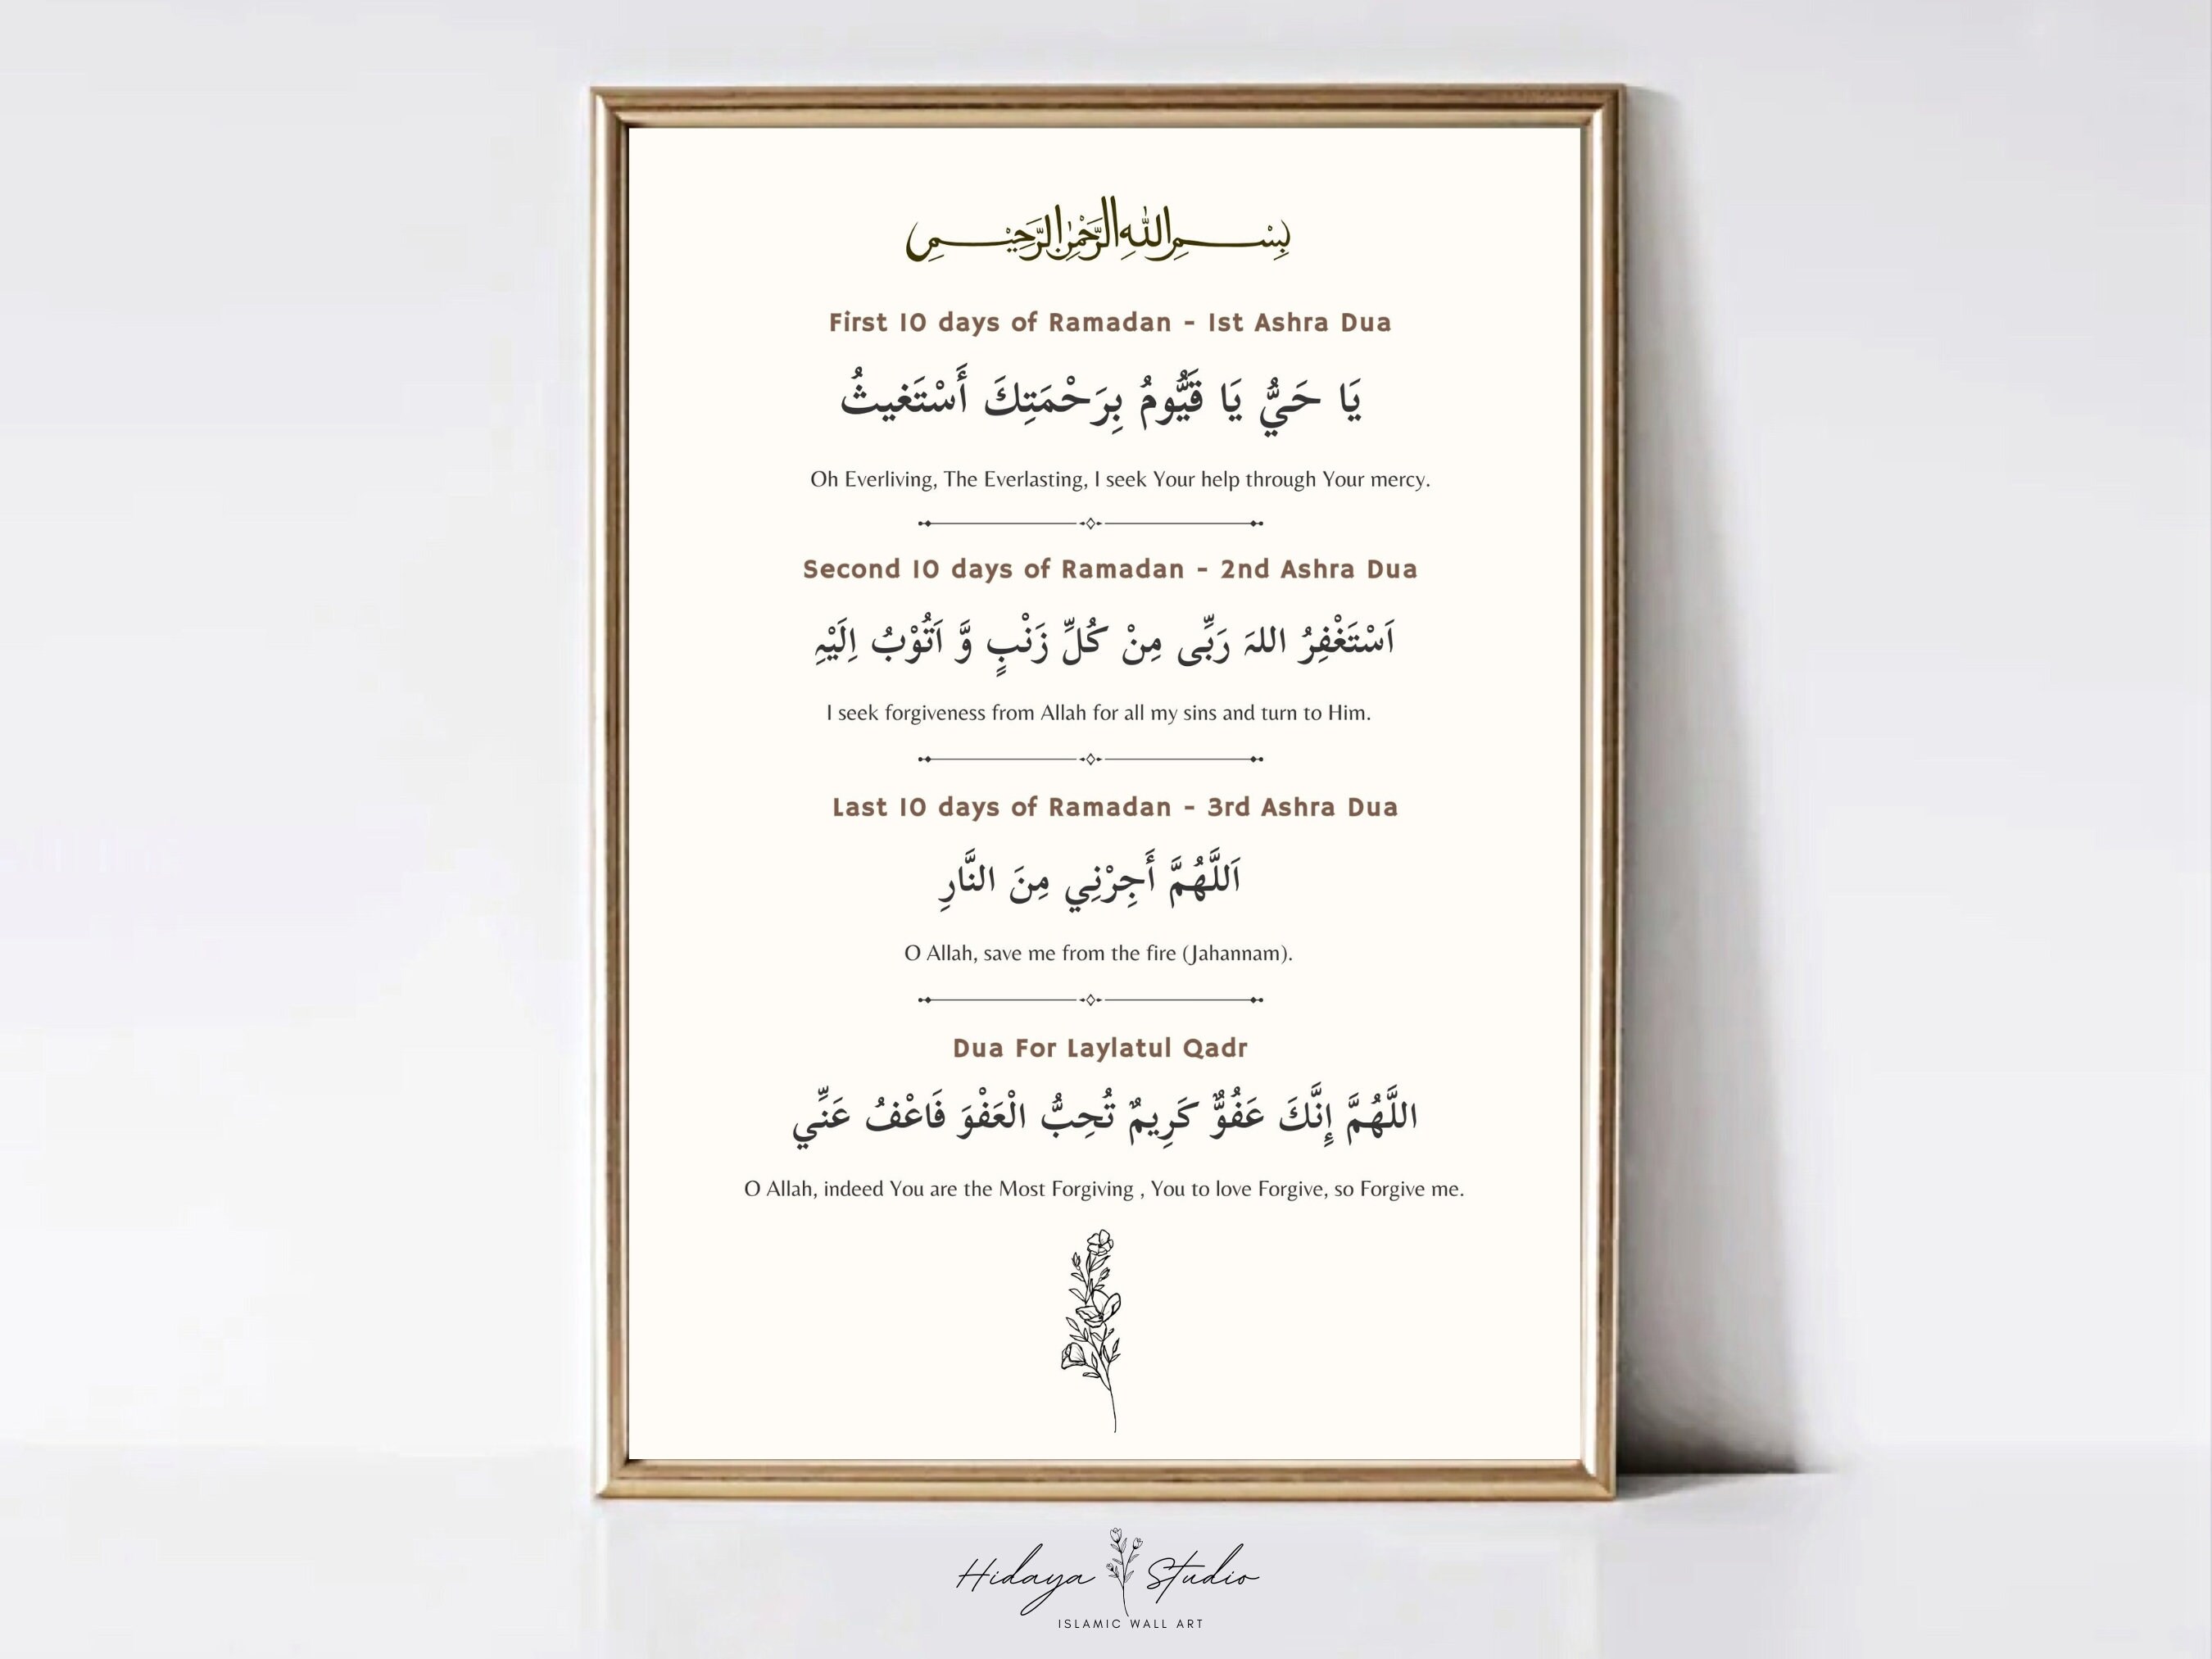 بِسْمِ اللهِ الرَّحْمٰنِ الرَّحِيْمِ
First 10 days of Ramadan - 1st Ashra Dua
يَا حَيُّ يَا قَيُّومُ بِرَحْمَتِكَ أَسْتَغيثُ
Oh Everliving, The Everlasting, I seek Your help through Your mercy.
Second 10 days of Ramadan - 2nd Ashra Dua
اَسْتَغْفِرُ اللہَ رَبِّی مِنْ کُلِّ زَنْبٍ وَّ اَتُوْبُ اِلَیْہِ
I seek forgiveness from Allah for all my sins and turn to Him.
Last 10 days of Ramadan - 3rd Ashra Dua
اَللَّهُمَّ أَجِرْنِي مِنَ النَّارِ
O Allah, save me from the fire (Jahannam).
Dua For Laylatul Qadr
اللَّهُمَّ إِنَّكَ عَفُوٌّ كَرِيمٌ تُحِبُّ الْعَفْوَ فَاعْفُ عَنِّي
O Allah, indeed You are the Most Forgiving , You to love Forgive, so Forgive me.
Hidaya Studio
ISLAMIC WALL ART